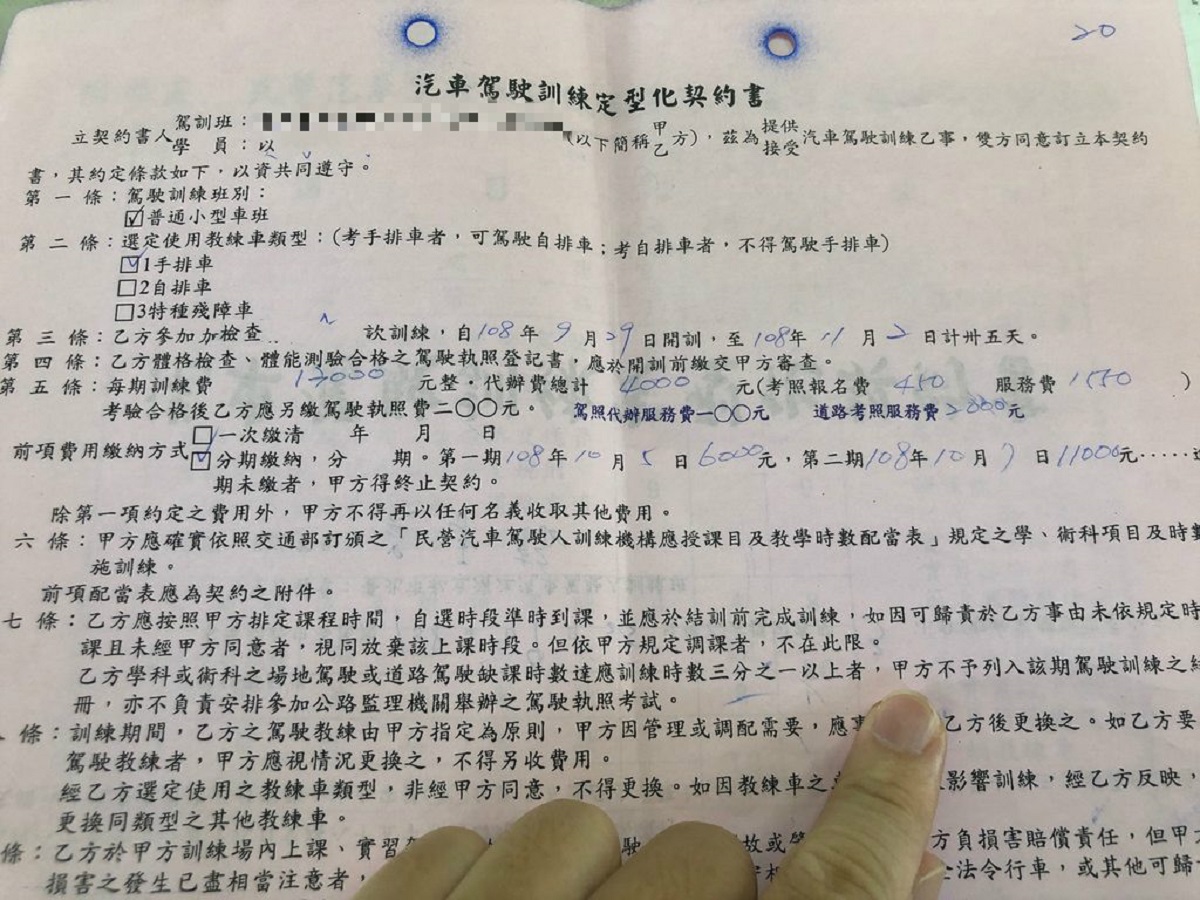 20
汽車駕駛訓練定型化契約書
立契約書人 駕訓班：
學 員：以
(以下簡稱甲乙方)，茲為提供接受汽車駕駛訓練乙事，雙方同意訂立本契約
書，其約定條款如下，以資共同遵守。
第 一 條：駕駛訓練班別：
☑普通小型車班
第 二 條：選定使用教練車類型：(考手排車者，可駕駛自排車；考自排車者，不得駕駛手排車)
☑1手排車
□2自排車
□3特種殘障車
第 三 條：乙方參加加檢查 次訓練，自108年9月29日開訓，至108年11月2日計卅五天。
第 四 條：乙方體格檢查、體能測驗合格之駕駛執照登記書，應於開訓前繳交甲方審查。
第 五 條：每期訓練費 13000 元整．代辦費總計 4000 元(考照報名費 450 服務費 1550 )
考驗合格後乙方應另繳駕駛執照費二〇〇元。 駕照代辦服務費一〇〇元 道路考照服務費2000元
前項費用繳納方式 □一次繳清 年 月 日
☑分期繳納，分 期。第一期108年10月5日6000元，第二期108年10月7日11000元‧‧‧‧‧
期未繳者，甲方得終止契約。
除第一項約定之費用外，甲方不得再以任何名義收取其他費用。
六 條：甲方應確實依照交通部訂頒之「民營汽車駕駛人訓練機構應授課目及教學時數配當表」規定之學、術科項目及時數
施訓練。
前項配當表應為契約之附件。
七 條：乙方應按照甲方排定課程時間，自選時段準時到課，並應於結訓前完成訓練，如因可歸責於乙方事由未依規定時
課且未經甲方同意者，視同放棄該上課時段。但依甲方規定調課者，不在此限。
乙方學科或術科之場地駕駛或道路駕駛缺課時數達應訓練時數三分之一以上者，甲方不予列入該期駕駛訓練之結
冊，亦不負責安排參加公路監理機關舉辦之駕駛執照考試。
條：訓練期間，乙方之駕駛教練由甲方指定為原則，甲方因管理或調配需要，應事 乙方後更換之。如乙方要
駕駛教練者，甲方應視情況更換之，不得另收費用。
經乙方選定使用之教練車類型，非經甲方同意，不得更換。如因教練車之 影響訓練，經乙方反映，
更換同類型之其他教練車。
條：乙方於甲方訓練場內上課、實習 駛 故或 方負損害賠償責任，但甲
損害之發生已盡相當注意者， 法令行車，或其他可歸